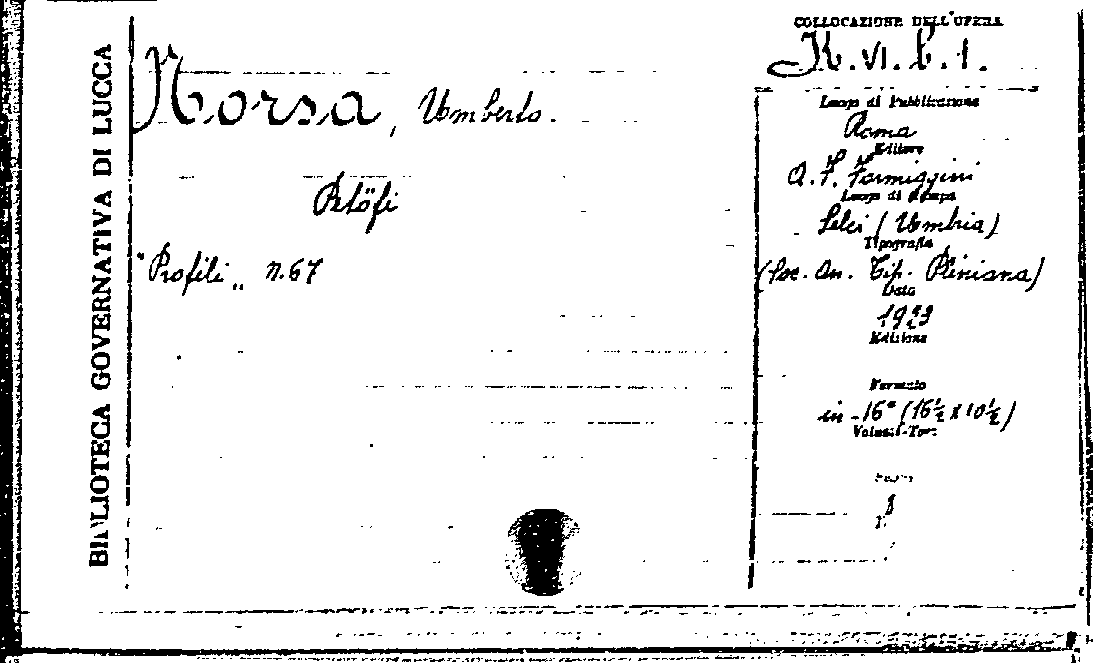 BIBLIOTECA GOVERNATIVA DI LUCCA
Norsa, Umberto.
Petöfi
"Profili„ n. 67
COLLOCAZIONE DELL'OPERA
K. VI. b. 1.
Luogo di Pubblicazione
Roma
Editore
A. F. Formiggini
Luogo di Stampa
Selci (Umbria)
Tipografia
(Soc. An. Tip. Pliniana)
Data
1923
Edizione
Formato
in-16° (16½ x 10½)
Volumi-Tomi